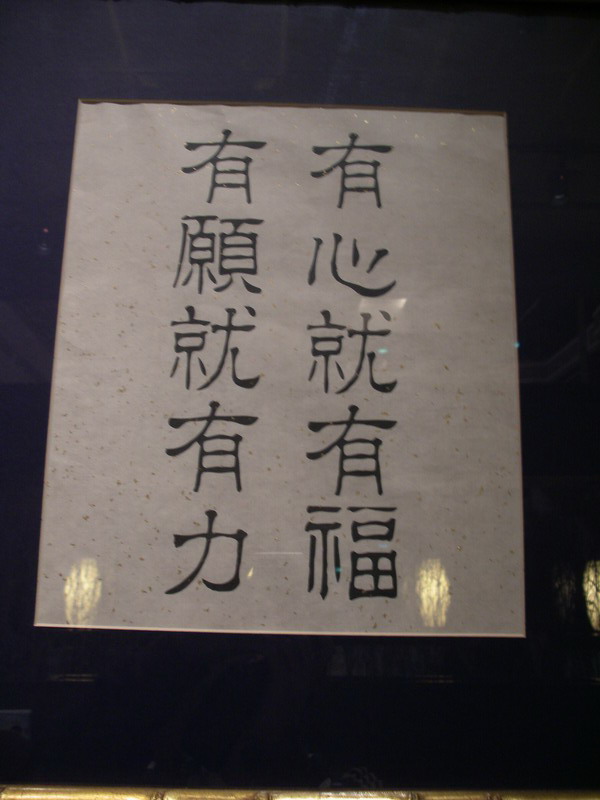 有心就有福
有願就有力